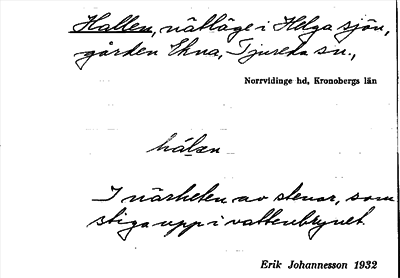 Hallen, nätläge i Helga sjön,
gården Ekna, Tjureda sn.,
Norrvidinge hd, Kronobergs län
hálɜn
I närheten av stenar, som
stiga upp i vattenbrynet.
Erik Johannesson 1932